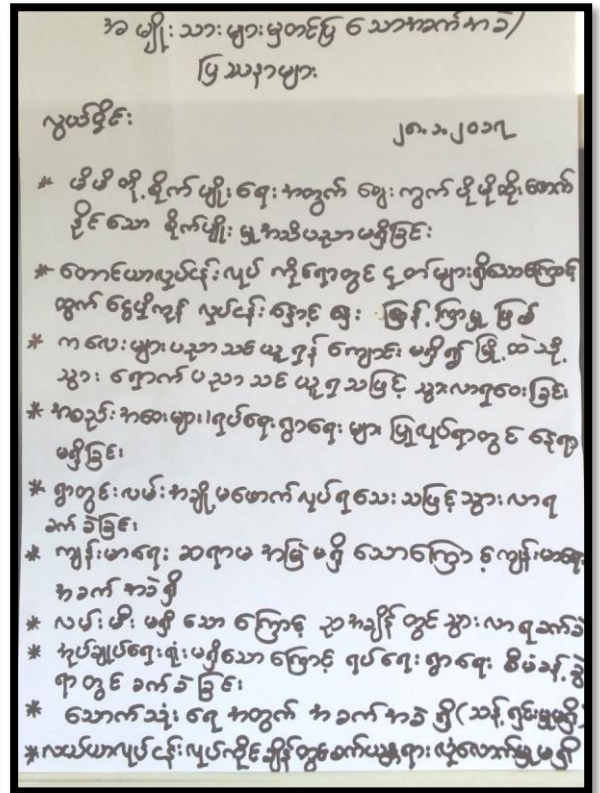 အမျိုးသားများမှတင်ပြသောအခက်အခဲ/
ပြဿနာများ
လွယ်မှိုင်း
၂၈.၁.၂၀၁၇
* မိမိတို့စိုက်ပျိုးရေးအတွက် ဈေးကွက်ပိုမိုထိုးဖောက်
နိုင်သော စိုက်ပျိုးမှုအသိပညာမရှိခြင်း
* တောင်ယာလုပ်ငန်းလုပ်ကိုရာတွင် ငှတ်များရှိသောကြောင့်
ထွက်ငွေပိုကုန် လုပ်ငန်းနှောင့်နှေး ကြန့်ကြာမှုဖြစ်
* ကလေးများပညာသင်ယူရန် ကျောင်းမရှိ၍ မြို့ထဲသို့
သွားရောက်ပညာသင်ယူရသဖြင့် သွားလာရဝေးခြင်း
* အစည်းအဝေးများ/ရပ်ရေးရွာရေးများပြုလုပ်ရာတွင် နေရာ
မရှိခြင်း
* ရွာတွင်းလမ်းအချို့မဖောက်လုပ်ရသေးသဖြင့်သွားလာရ
ခက်ခဲခြင်း
* ကျန်းမာရေးဆရာမအမြဲမရှိသောကြောင့်ကျန်းမာရေး
အခက်အခဲရှိ
* လမ်းမီးမရှိသောကြောင့် ညအချိန်တွင်သွားလာရခက်ခဲ
* အုပ်ချုပ်ရေးရုံးမရှိသောကြောင့် ရပ်ရေးရွာရေးစီမံခန့်ခွဲ
ရာတွင်ခက်ခဲခြင်း
* သောက်သုံးရေအတွက်အခက်အခဲရှိ(သန့်ရှင်းမှုမရှိ)
* လယ်ယာလုပ်ငန်းလုပ်ကိုင်ချိန်တွင်စက်ယန္တရားလုံလောက်မှုမရှိ